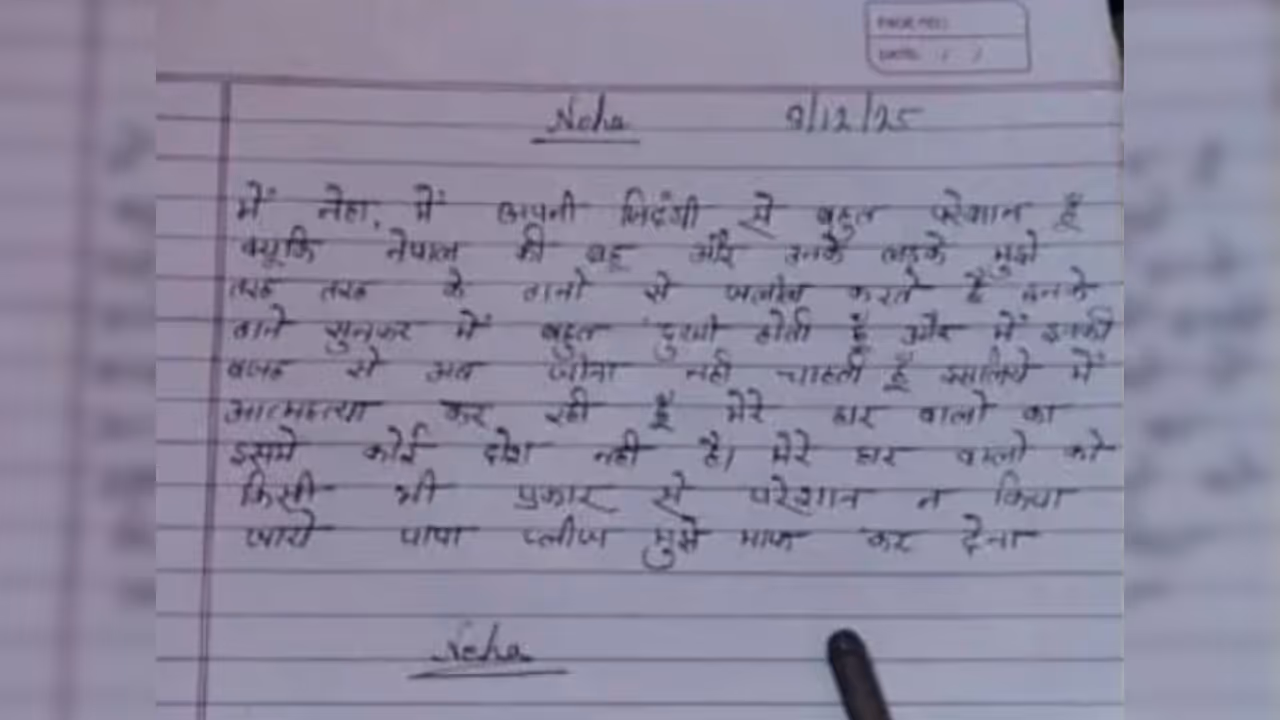 PAGE NO:
DATE: / /
Neha 9/12/25
में नेहा, में अपनी जिदंगी से बहुत परेशान हूँ
क्यूकि नेपाल की बहू और उनके लडके मुझे
तरह तरह के तानो से जलील करते है इनके
ताने सुनकर में बहुत दुखी होती हूँ और में इनकी
वजह से अब जीना नही चाहती हूँ इसलिये में
आत्महत्या कर रही हूँ मेरे घर वालो का
इसमे कोई दोश नही है। मेरे घर वालो को
किसी भी प्रकार से परेशान न किया
जाये पापा प्लीज मुझे माफ कर देना
Neha